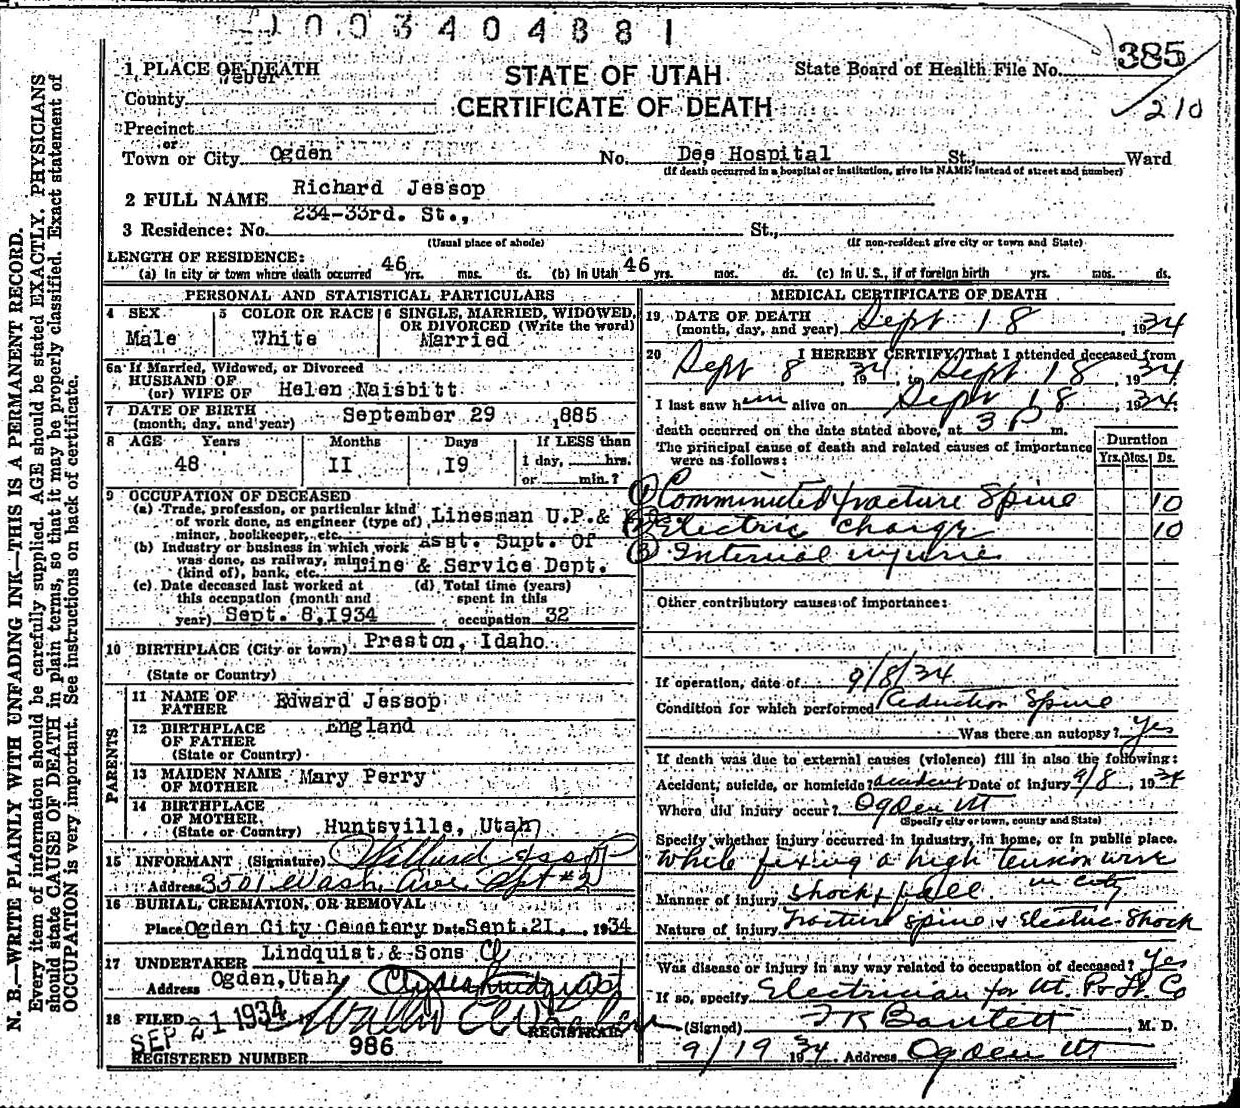 1003404881
385
210
1 PLACE OF DEATH
STATE OF UTAH
State Board of Health File No.
Weber
County
CERTIFICATE OF DEATH
Precinct
or
Town or City Ogden No. Dee Hospital St., Ward
(If death occurred in a hospital or institution, give its NAME instead of street and number)
2 FULL NAME Richard Jessop
234-33rd. St.,
3 Residence: No. St.,
(Usual place of abode) (If non-resident give city or town and State)
LENGTH OF RESIDENCE:
(a) In city or town where death occurred 46 yrs. mos. ds. (b) In Utah 46 yrs. mos. ds. (c) In U. S., if of foreign birth yrs. mos. ds.
PERSONAL AND STATISTICAL PARTICULARS
4 SEX 5 COLOR OR RACE 6 SINGLE, MARRIED, WIDOWED, OR DIVORCED (Write the word)
Male White Married
6a If Married, Widowed, or Divorced
HUSBAND OF
(or) WIFE OF Helen Naisbitt
7 DATE OF BIRTH
(month, day, and year) September 29 1885
8 AGE Years Months Days If LESS than
48 II I9 1 day, hrs.
or min.?
9 OCCUPATION OF DECEASED
(a) Trade, profession, or particular kind
of work done, as engineer (type of) Linesman U.P.&
miner, bookkeeper, etc.
(b) Industry or business in which work Asst. Supt. Of
was done, as railway, mine
(kind of), bank, etc. Line & Service Dept.
(c) Date deceased last worked at (d) Total time (years)
this occupation (month and spent in this
year) Sept. 8,1934 occupation 32
10 BIRTHPLACE (City or town) Preston, Idaho
(State or Country)
PARENTS
11 NAME OF
FATHER Edward Jessop
12 BIRTHPLACE England
OF FATHER
(State or Country)
13 MAIDEN NAME Mary Perry
OF MOTHER
14 BIRTHPLACE
OF MOTHER
(State or Country) Huntsville, Utah
15 INFORMANT (Signature) Willard Jessop
Address 3501 Wash. Ave. Apt #2
16 BURIAL, CREMATION, OR REMOVAL
Place Ogden City Cemetery Date Sept.21, 1934
Lindquist & Sons
17 UNDERTAKER
Address Ogden,Utah
18 FILED SEP 21 1934 19
REGISTRAR
REGISTERED NUMBER 986
MEDICAL CERTIFICATE OF DEATH
19 DATE OF DEATH
(month, day, and year) Sept 18, 1934
20 I HEREBY CERTIFY, That I attended deceased from
Sept 8, 1934, to Sept 18, 1934
I last saw him alive on Sept 18, 1934.
death occurred on the date stated above, at 3 P m.
The principal cause of death and related causes of importance
were as follows:
Duration
Yrs. Mos. Ds.
(1) Comminuted fracture Spine 10
(2) Electric charge 10
(3) Internal injuries
Other contributory causes of importance:
If operation, date of 9/8/34
Condition for which performed Reduction Spine
Was there an autopsy? Yes
If death was due to external causes (violence) fill in also the following:
Accident, suicide, or homicide? accident Date of injury 9/8, 1934
Where did injury occur? Ogden Ut
(Specify city or town, county and State)
Specify whether injury occurred in industry, in home, or in public place.
While fixing a high tension wire
in city
Manner of injury shock & fall
Nature of injury Fracture Spine & Electric Shock
Was disease or injury in any way related to occupation of deceased? Yes
If so, specify Electrician for Ut. Pr. Lt. Co
(Signed) , M. D.
9/19 1934 Address Ogden Ut
N. B.—WRITE PLAINLY WITH UNFADING INK—THIS IS A PERMANENT RECORD.
Every item of information should be carefully supplied. AGE should be stated EXACTLY. PHYSICIANS
should state CAUSE OF DEATH in plain terms, so that it may be properly classified. Exact statement of
OCCUPATION is very important. See instructions on back of certificate.